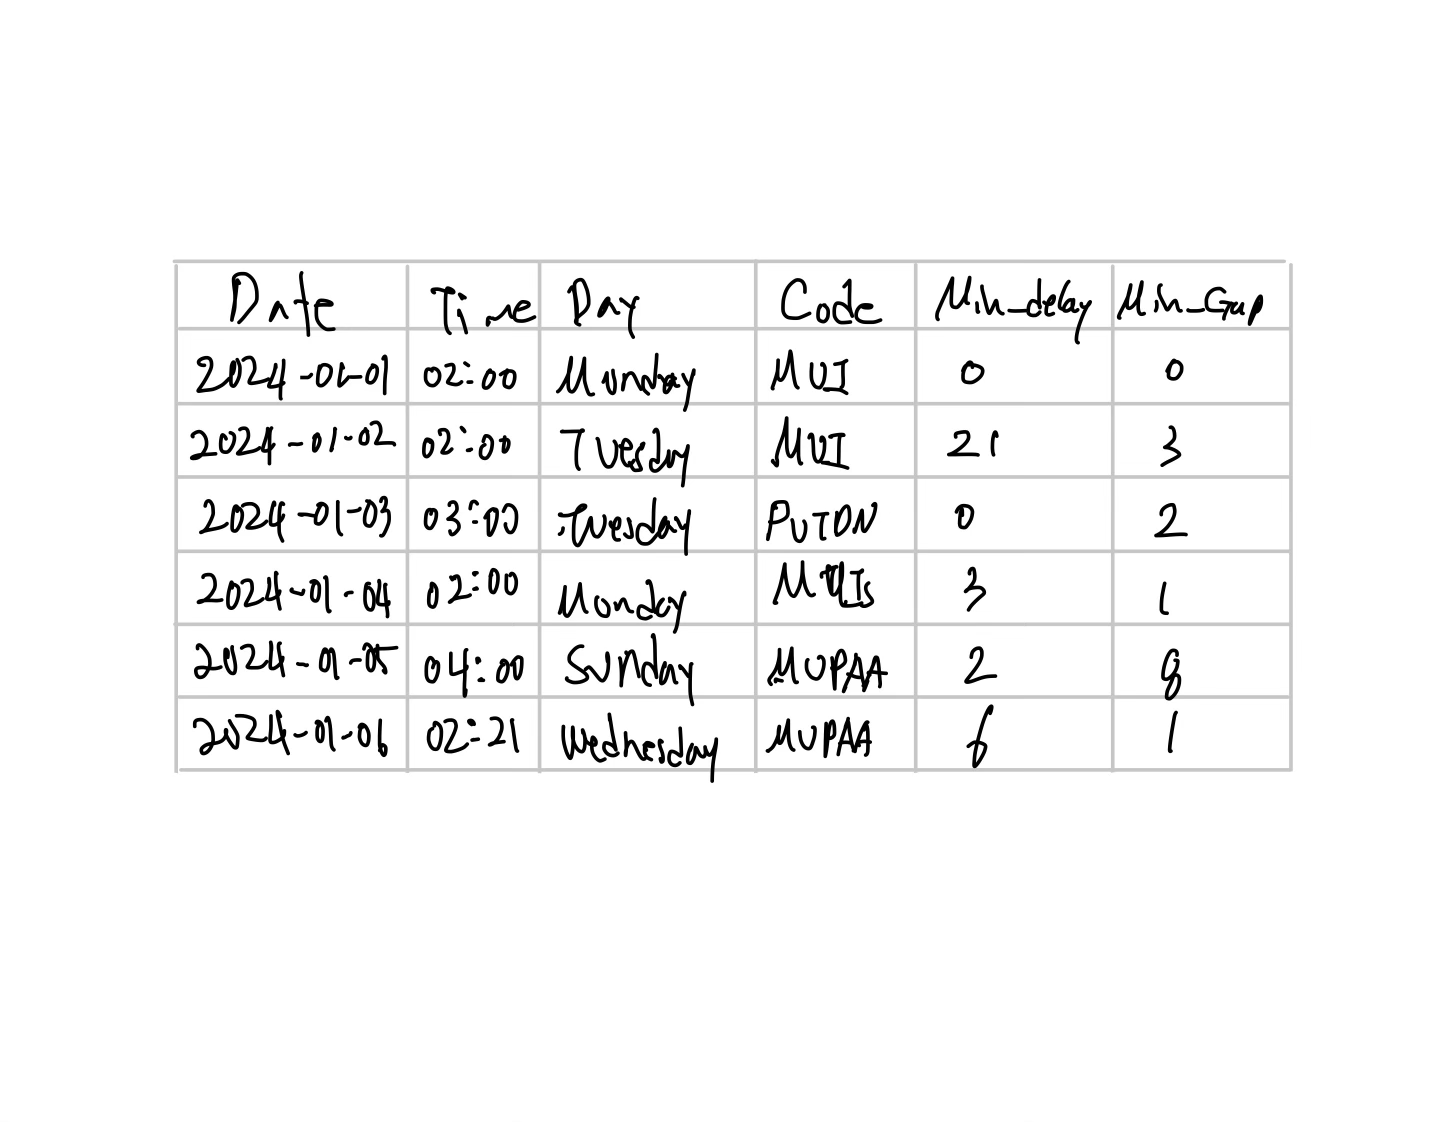 Date Time Day Code Min_delay Min_Gap
2024-01-01 02:00 Monday MUI 0 0
2024-01-02 02:00 Tuesday MUI 21 3
2024-01-03 03:00 Tuesday PUTDN 0 2
2024-01-04 02:00 Monday MUIs 3 1
2024-01-05 04:00 Sunday MUPAA 2 8
2024-01-06 02:21 Wednesday MUPAA 6 1